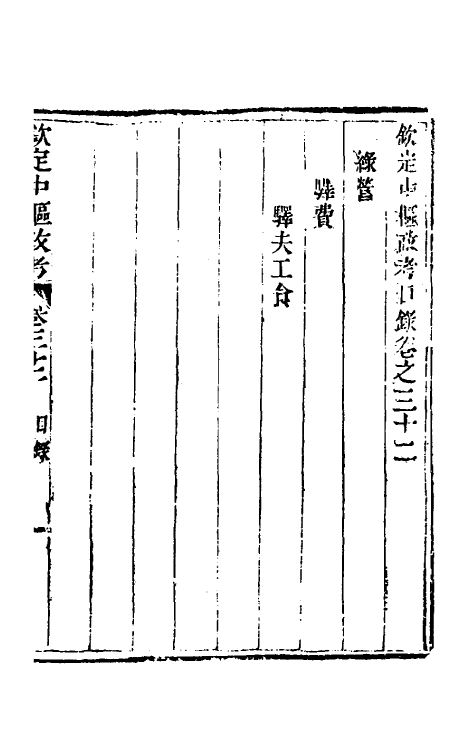 欽定中樞政考目錄卷之三十二
綠營
驛費
驛夫工食
欽定中樞政考 卷三十二 目錄 一